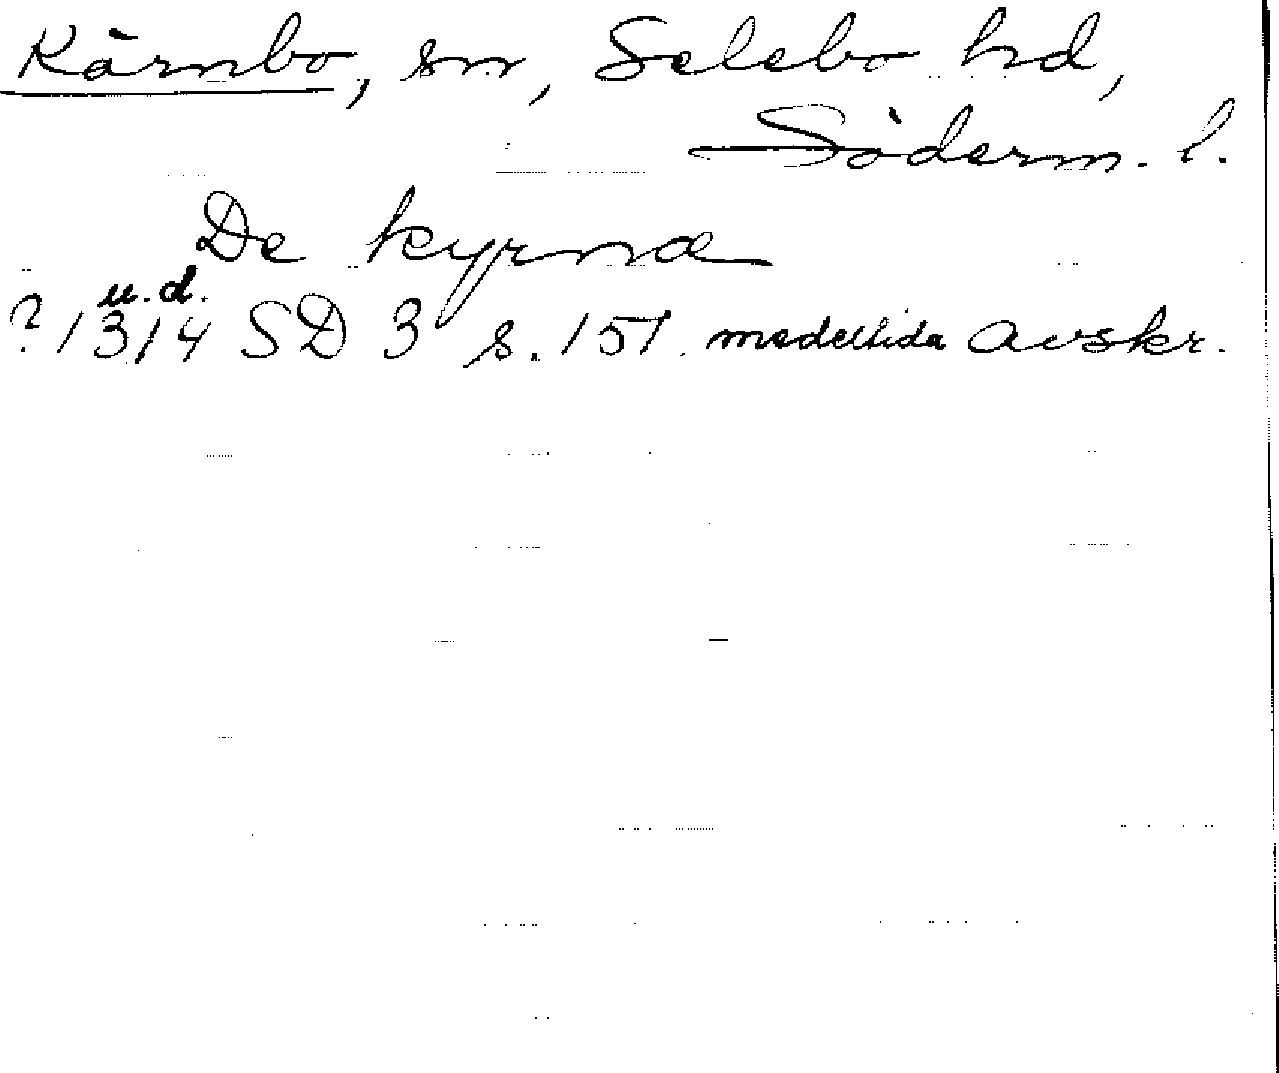 Kärnbo, sn, Selebo hd,
Söderm. l.
De kyrna
u.d.
? 1314 SD 3 s. 151. medeltida avskr.